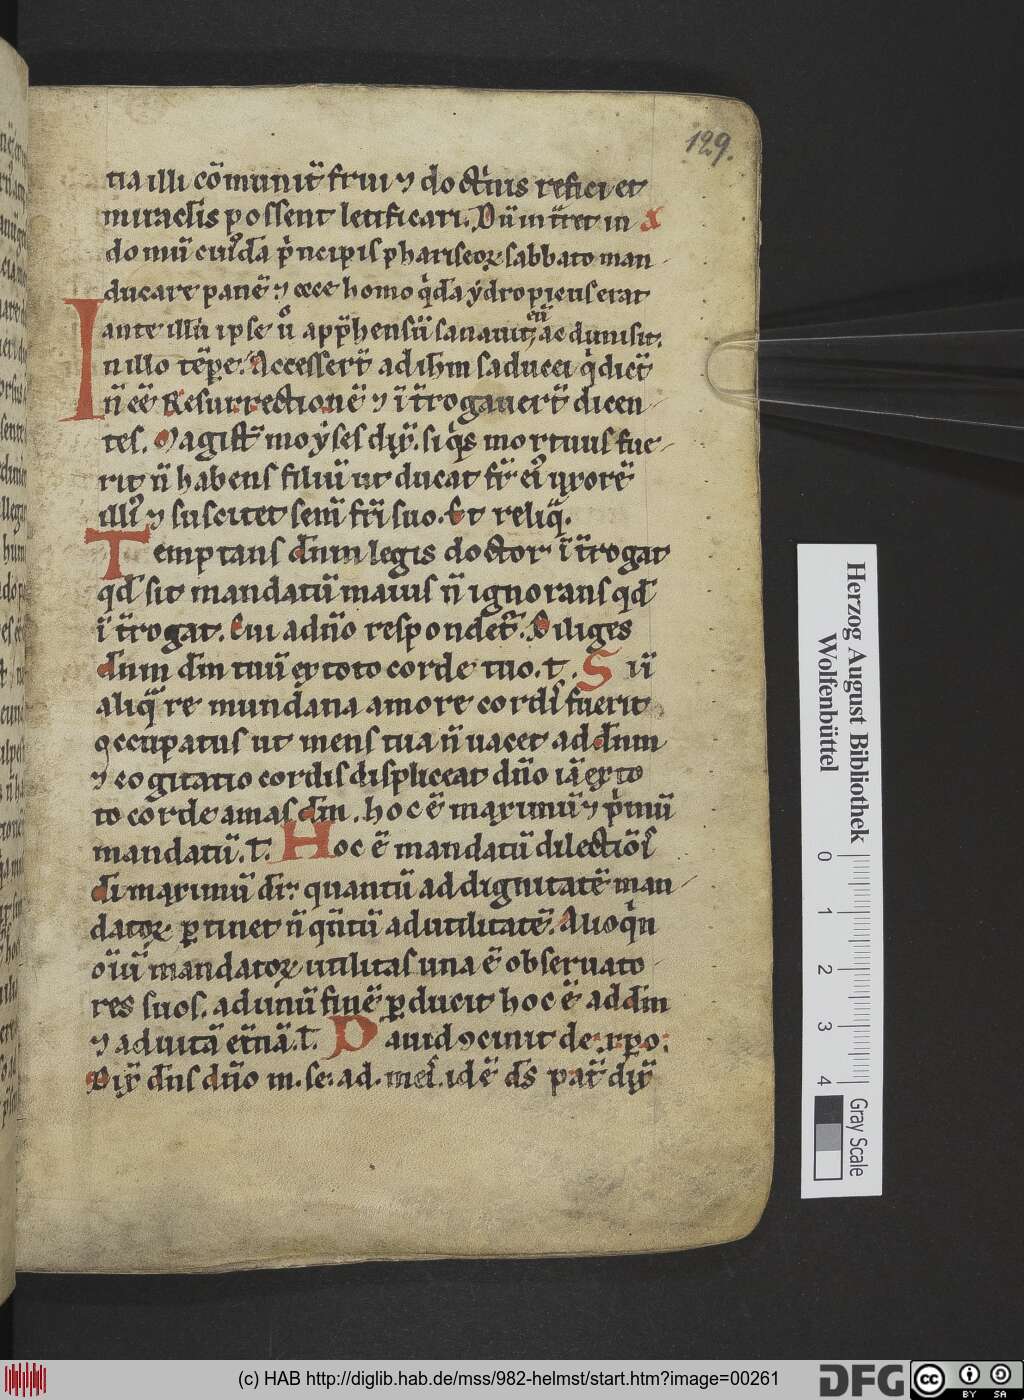 129.
tia illi cōmunit̄ frui ⁊ doctͥius refici et
miracl̄is possent letificari. Dū int̄ret in x
domū cuiꝰdā pͥncipis phariseoꝝ sabbato man
ducare panē ⁊ ecce homo qͥdā ydropicus erat
ante illū ipse ů app̄hensū sanauit eū ac dimisit.
In illo tēꝑe. Accessert̄ ad ih̄m saducei qͥ dict̄
n̄ eē Resurrectionē ⁊ īt̄rogauert̄ dicen
tes. Magist̄ moyses dix̄. si qͥs mortuus fue
rit n̄ habens filiū ut ducat fr̄ eiꝰ uxorē
illiꝰ ⁊ suscitet sem̄ fr̄i suo. Et reliq̄.
Temptans dn̄m legis doctor īt̄rogat
qd̄ sit mandatū maius n̄ ignorans qd̄
īt̄rogat. Cui a dn̄o respondet̄. Diliges
dn̄m dm̄ tuū ex toto corde tuo. t̄. Si ů
aliqͣ re mundana amore cordis fuerit
occupatus ut mens tua n̄ uacet ad dn̄m
⁊ cogitatio cordis displiceat dn̄o iā ex to
to corde amas dm̄. hoc ē maximū ⁊ pͥmū
mandatū. t̄. Hoc ē mandatū dilectiōis
di maximū dr̄ quantū ad dignitatē man
datoꝝ ꝑtinet n̄ qn̄tū ad utilitatē. Alioqͥn
oīū mandatoꝝ utilitas una ē obseruato
res suos. ad unū finē ꝑducit hoc ē ad dm̄
⁊ ad uitā et̄nā. t̄. Dauid ꝯcinit de xꝑo.
Dix̄ dn̄s dn̄o m. se. ad. mei. id ē ds̄ pat̄ dix̄
Herzog August Bibliothek
Wolfenbüttel
0 1 2 3 4
Gray Scale
(c) HAB http://diglib.hab.de/mss/982-helmst/start.htm?image=00261
DFG
cc BY SA